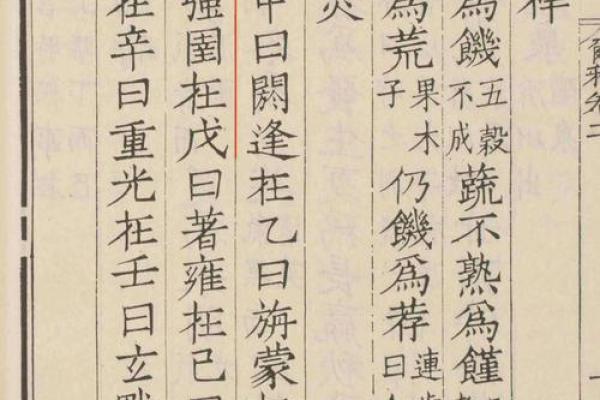 爾雅卷二
祥
爲饑五穀不成蔬不熟爲饉
爲荒果木子仍饑爲荐連歲曰
災
甲曰閼逢在乙曰旃蒙在
強圉在戊曰著雍在己曰
在辛曰重光在壬曰玄黓